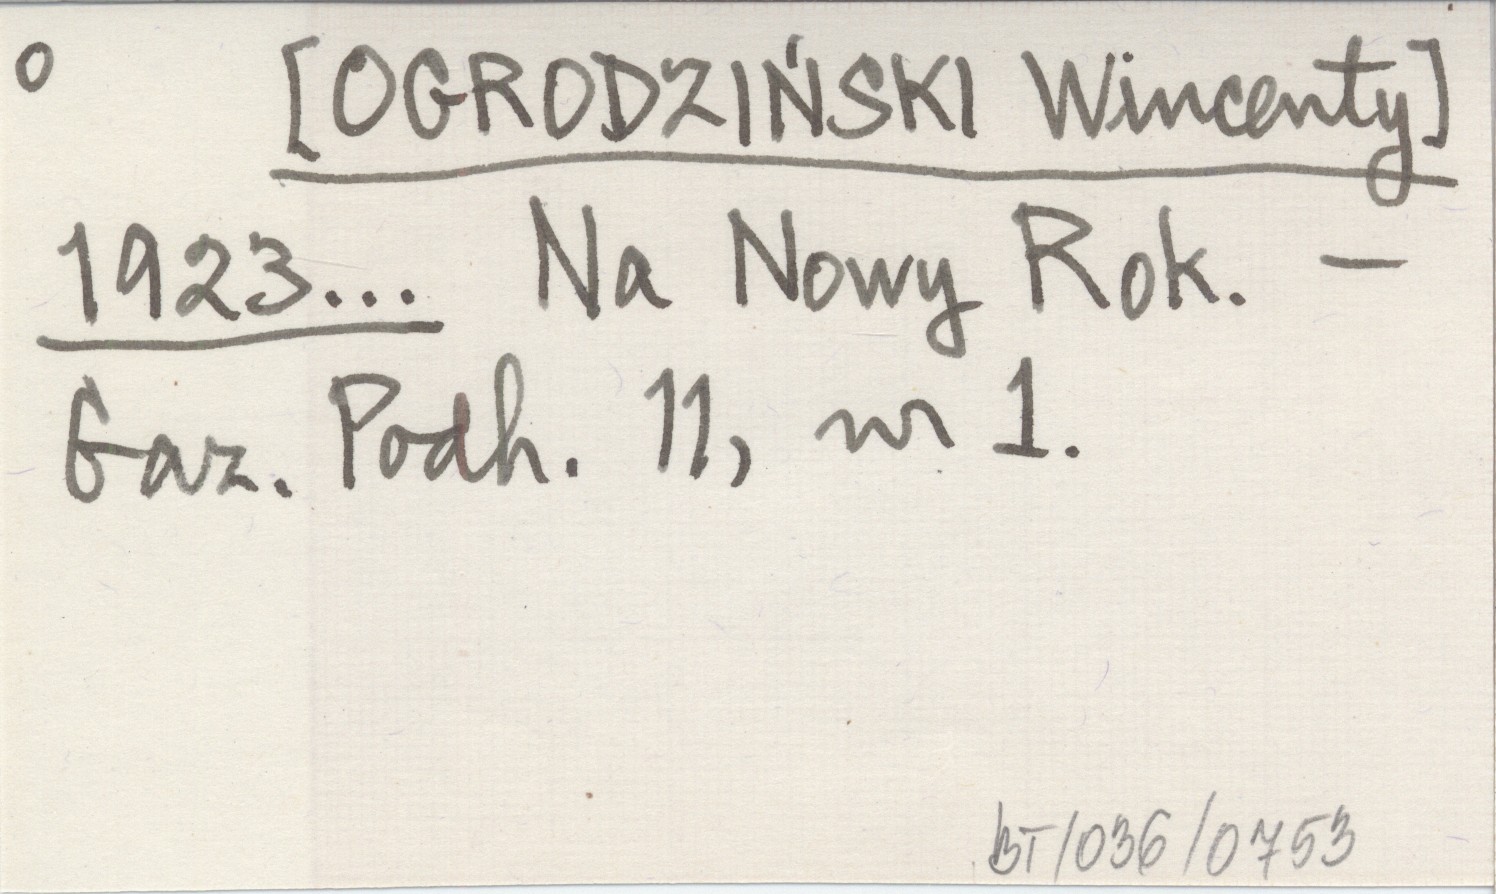 o [OGRODZIŃSKI Wincenty]
1923... Na Nowy Rok. —
Gaz. Podh. 11, nr 1.
BT/036/0753